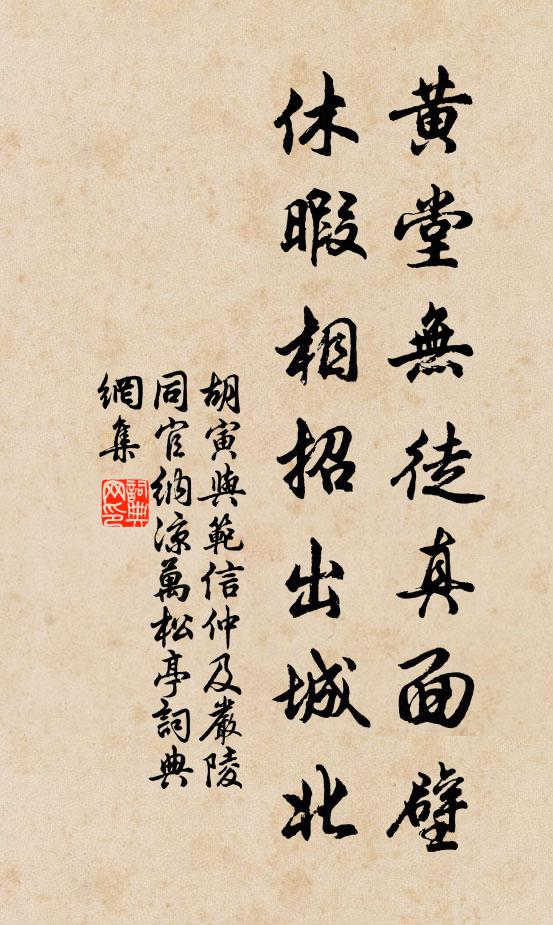 黄堂無徒真面壁
休暇相招出城北
胡寅與範信仲及嚴陵
同官納涼萬松亭詞典
網集
詞典
网印